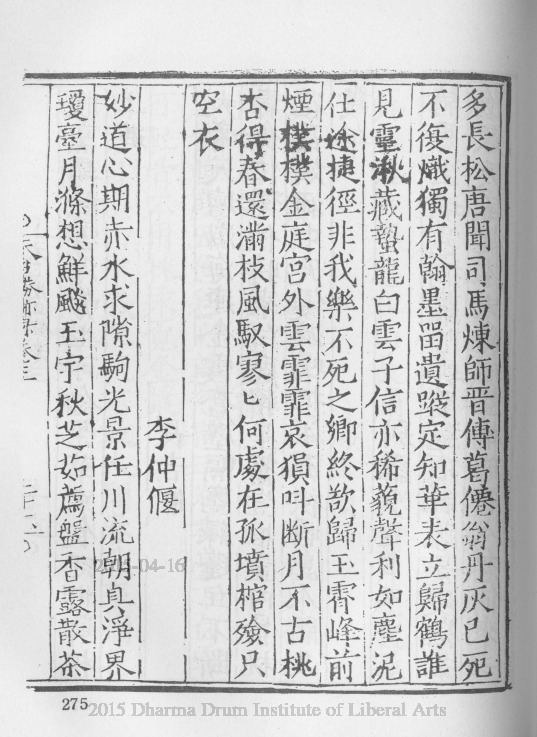 多長松唐聞司馬煉師晋傳葛僊翁丹灰已死
不復熾獨有翰墨畱遺蹤定知華表立歸鶴誰
見靈湫藏蟄龍白雲子信亦稀藐聲利如塵泥
仕途捷徑非我樂不死之鄉終欲歸玉霄峰前
煙撲撲金庭宫外雲霏霏哀猿呌断月不古桃
杏得春還滿枝風馭寥匕何處在孤墳棺殮只
空衣
李仲偃
妙道心期赤水求隙駒光景任川流朝眞淨界
瓊臺月滌想鮮飈玉宇秋芝茹薦盤香露散茶
2015-04-16
275
2015 Dharma Drum Institute of Liberal Arts